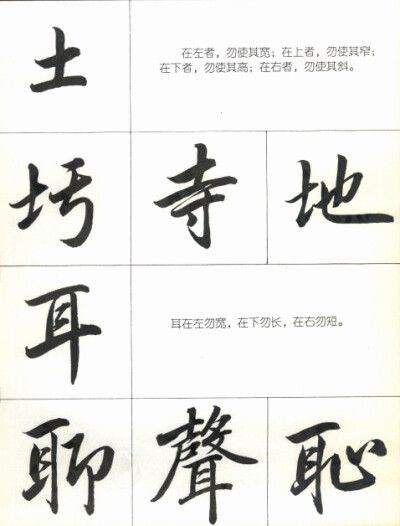 土
在左者，勿使其宽；在上者，勿使其窄；
在下者，勿使其高；在右者，勿使其斜。
圬 寺 地
耳
耳在左勿宽，在下勿长，在右勿短。
聊 聲 恥